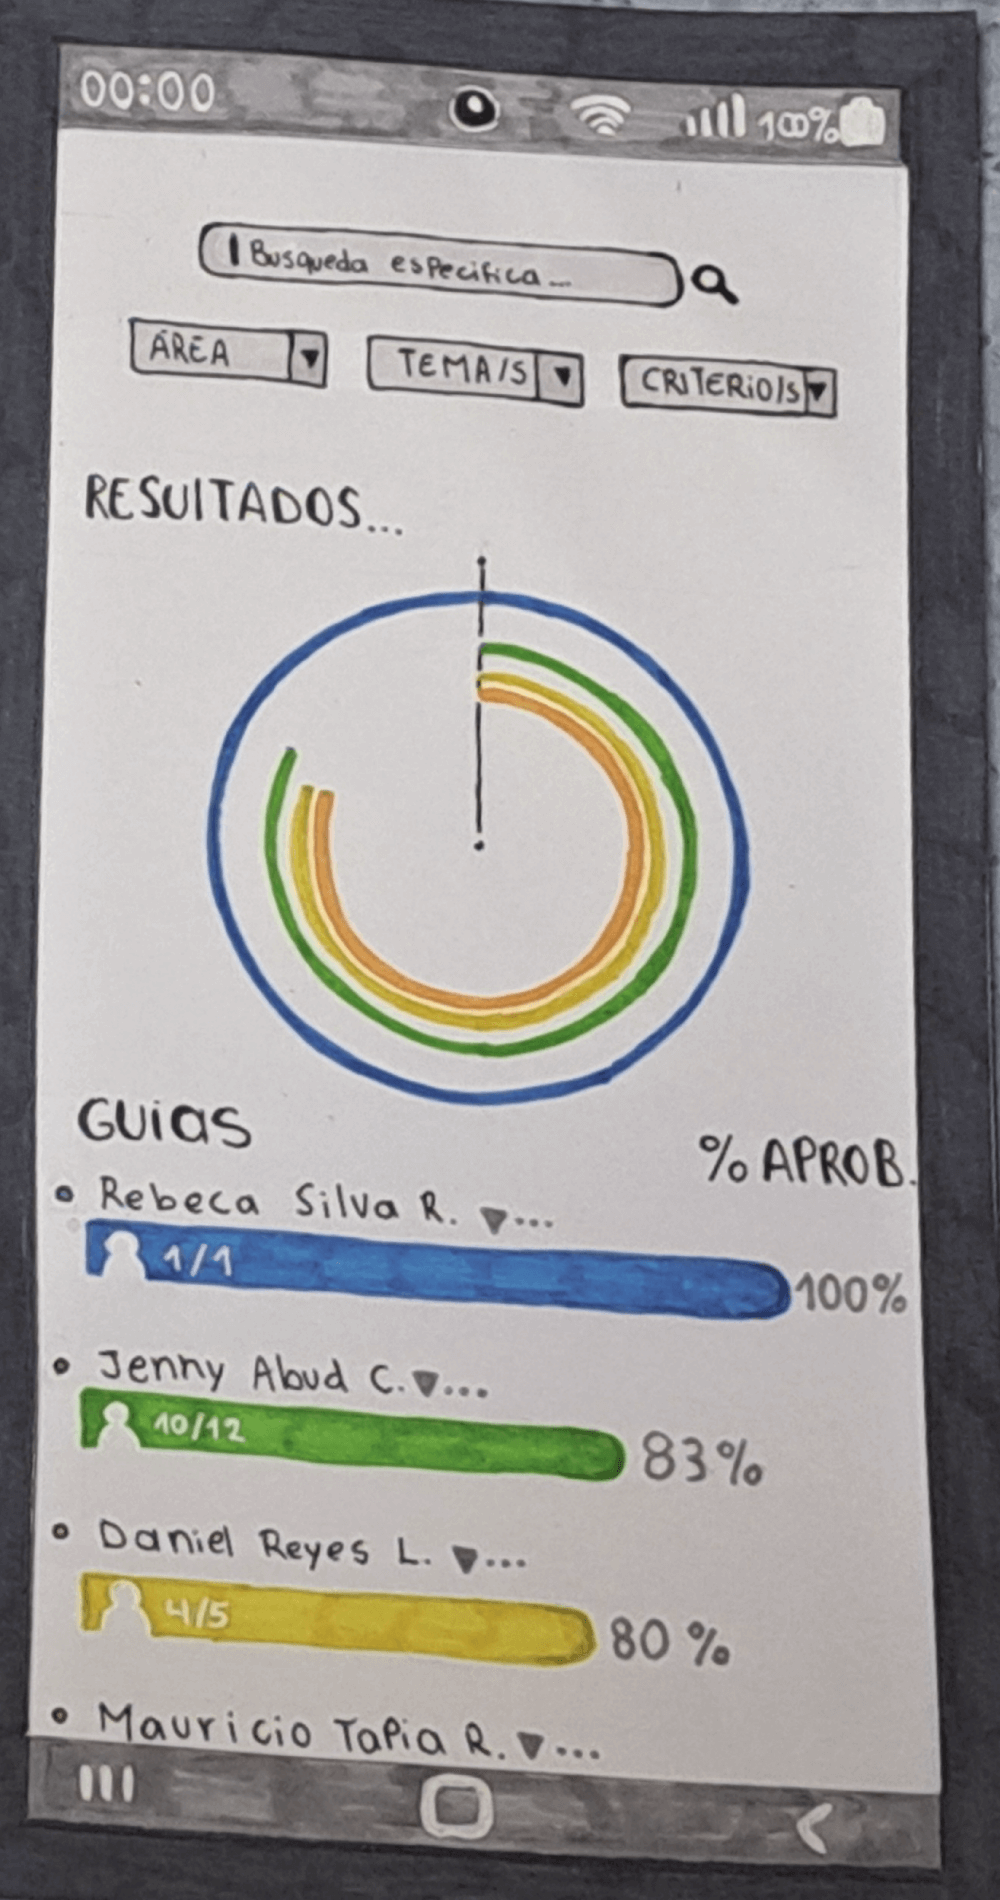 00:00 100%
Busqueda especifica...
ÁREA TEMA/S CRITERIO/S
RESULTADOS...
GUIAS
% APROB.
Rebeca Silva R. ...
1/1 100%
Jenny Abud C. ...
10/12 83%
Daniel Reyes L. ...
4/5 80 %
Mauricio Tapia R. ...